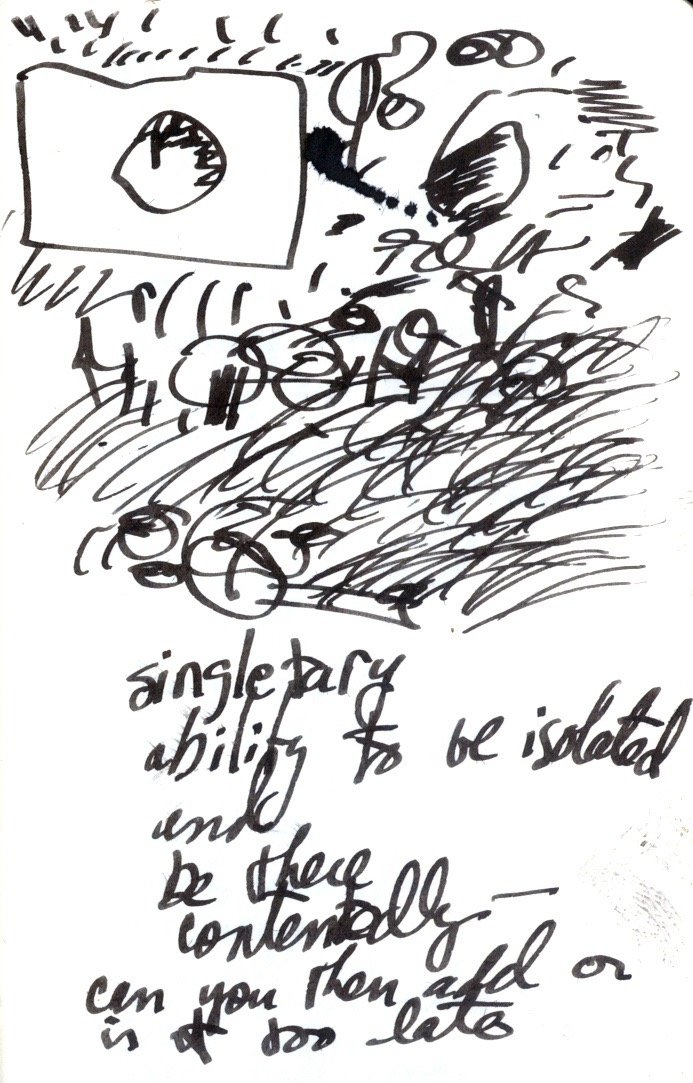 singletary
ability to be isolated
and
be there
contentedly —
can you then add or
is it too late